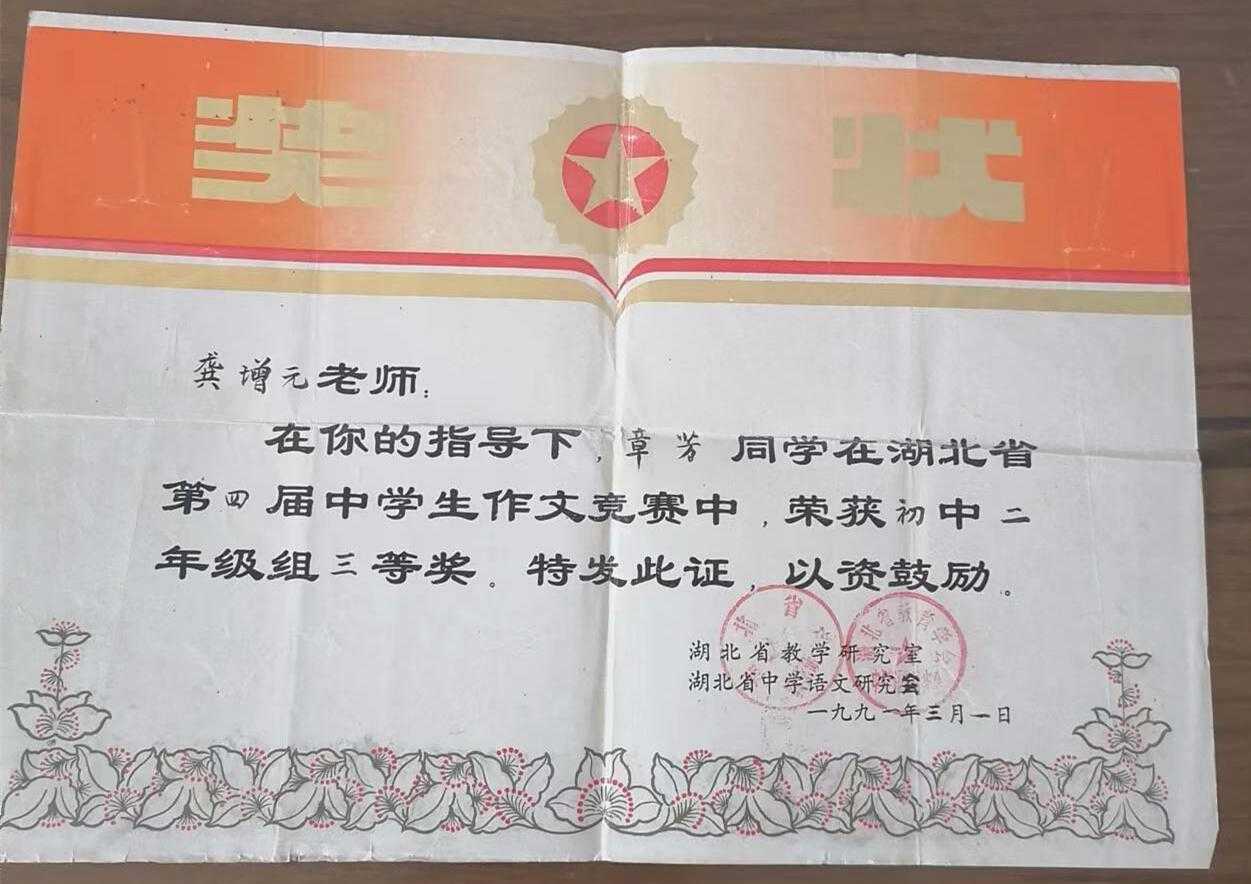 奖状
龚增元老师：
在你的指导下，章芳同学在湖北省
第四届中学生作文竞赛中，荣获初中二
年级组三等奖。特发此证，以资鼓励。
湖北省教学研究室
湖北省中学语文研究会
一九九一年三月一日